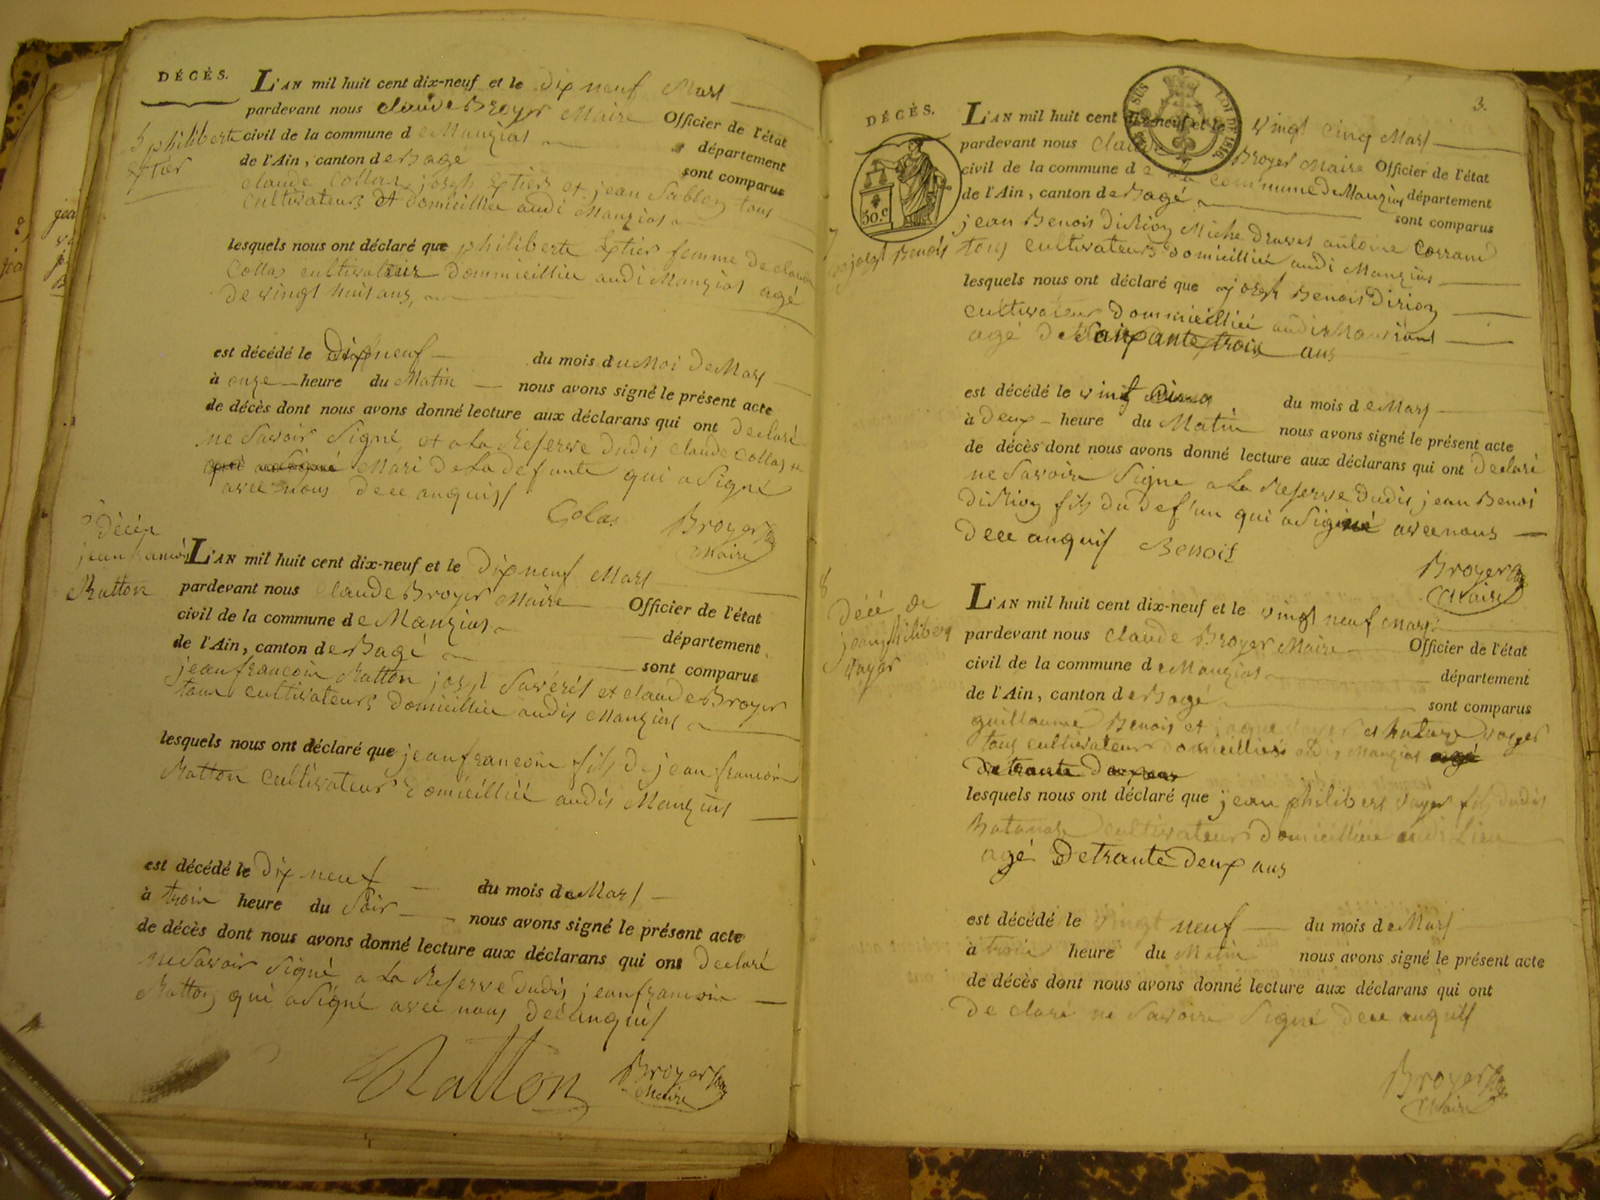 DÉCÈS.
L'AN mil huit cent dix-neuf et le dix neuf Mars
pardevant nous Claude Broyer Maire Officier de l'état
5 philiberte
civil de la commune de Manziat département
Extier
de l'Ain, canton de Bagé sont comparus
Claude Collas joseph Extier et jean Sablon tous
cultivateurs et domicillié audi Manziat
lesquels nous ont déclaré que philiberte Extier femme de claude
Collas cultivateur dommicillié audi Manziat agé
de vingt huit ans
est décédé le Dix neuf du mois du Moi de Mars
à onze heure du Matin nous avons signé le présent acte
de décès dont nous avons donné lecture aux déclarans qui ont declaré
ne Savoir Signé et a La Reserve dudis Claude Collas
Mari de La defunte qui a Signé
avec nous dece anquis
Colas Broyer
Maire
Décéz
jean francois
Ratton
L'AN mil huit cent dix-neuf et le Dix neuf Mars
pardevant nous Claude Broyer Maire Officier de l'état
civil de la commune de Manziat département
de l'Ain, canton de Bagé sont comparus
jean francoin Ratton joseph et Claude Broyer
tous cultivateurs domicillié audis Manziat
lesquels nous ont déclaré que jean francoin fils de jean francoin
Ratton cultivateur domicillié audis Manziat
est décédé le Dix neuf du mois de Mars
à troin heure du Soir nous avons signé le présent acte
de décès dont nous avons donné lecture aux déclarans qui ont declaré
ne Savoir Signé a La Reserve dudis jean francoin
Ratton qui a Signé avec nous dece anquis
Ratton Broyer
Maire
3.
DÉCÈS.
50.c
L'AN mil huit cent dix-neuf et le vingt cinq Mars
pardevant nous Claude Broyer Maire Officier de l'état
civil de la commune de La commune de Manziat département
de l'Ain, canton de Bagé sont comparus
7
joseph Benois
jean Benois diRion Miche antoine Corrand
tous cultivateurs domicillié audi Manziat
lesquels nous ont déclaré que joseph Benois dirion
cultivateur dommicillié audis Manziat
agé de Soixante trois ans
est décédé le vint Cinq du mois de Mars
à Deux heure du Matin nous avons signé le présent acte
de décès dont nous avons donné lecture aux déclarans qui ont declaré
ne Savoir Signe a La Reserve dudis jean Benoi
diRion fils du def'un qui a Signé avec nous
dece anquis Benois
Broyer
Maire
8
Décé de
jean philibert
voyer
L'AN mil huit cent dix-neuf et le vingt neuf Mars
pardevant nous Claude Broyer Maire Officier de l'état
civil de la commune de Manziat département
de l'Ain, canton de Bagé sont comparus
guillaume Benois et voyer
tous cultivateur domicilliés audis Manziat agé
de trante deux ans
lesquels nous ont déclaré que jean philibert voyer fils dudis
cultivateur domicillié audi Lieu
agé De trante deux ans
est décédé le vingt neuf du mois de Mars
à troin heure du Matin nous avons signé le présent acte
de décès dont nous avons donné lecture aux déclarans qui ont
declaré ne Savoir Signé dece anquis
Broyer
Maire